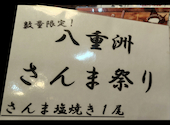 数量限定！
八重洲
さんま祭り
さんま塩焼き1尾